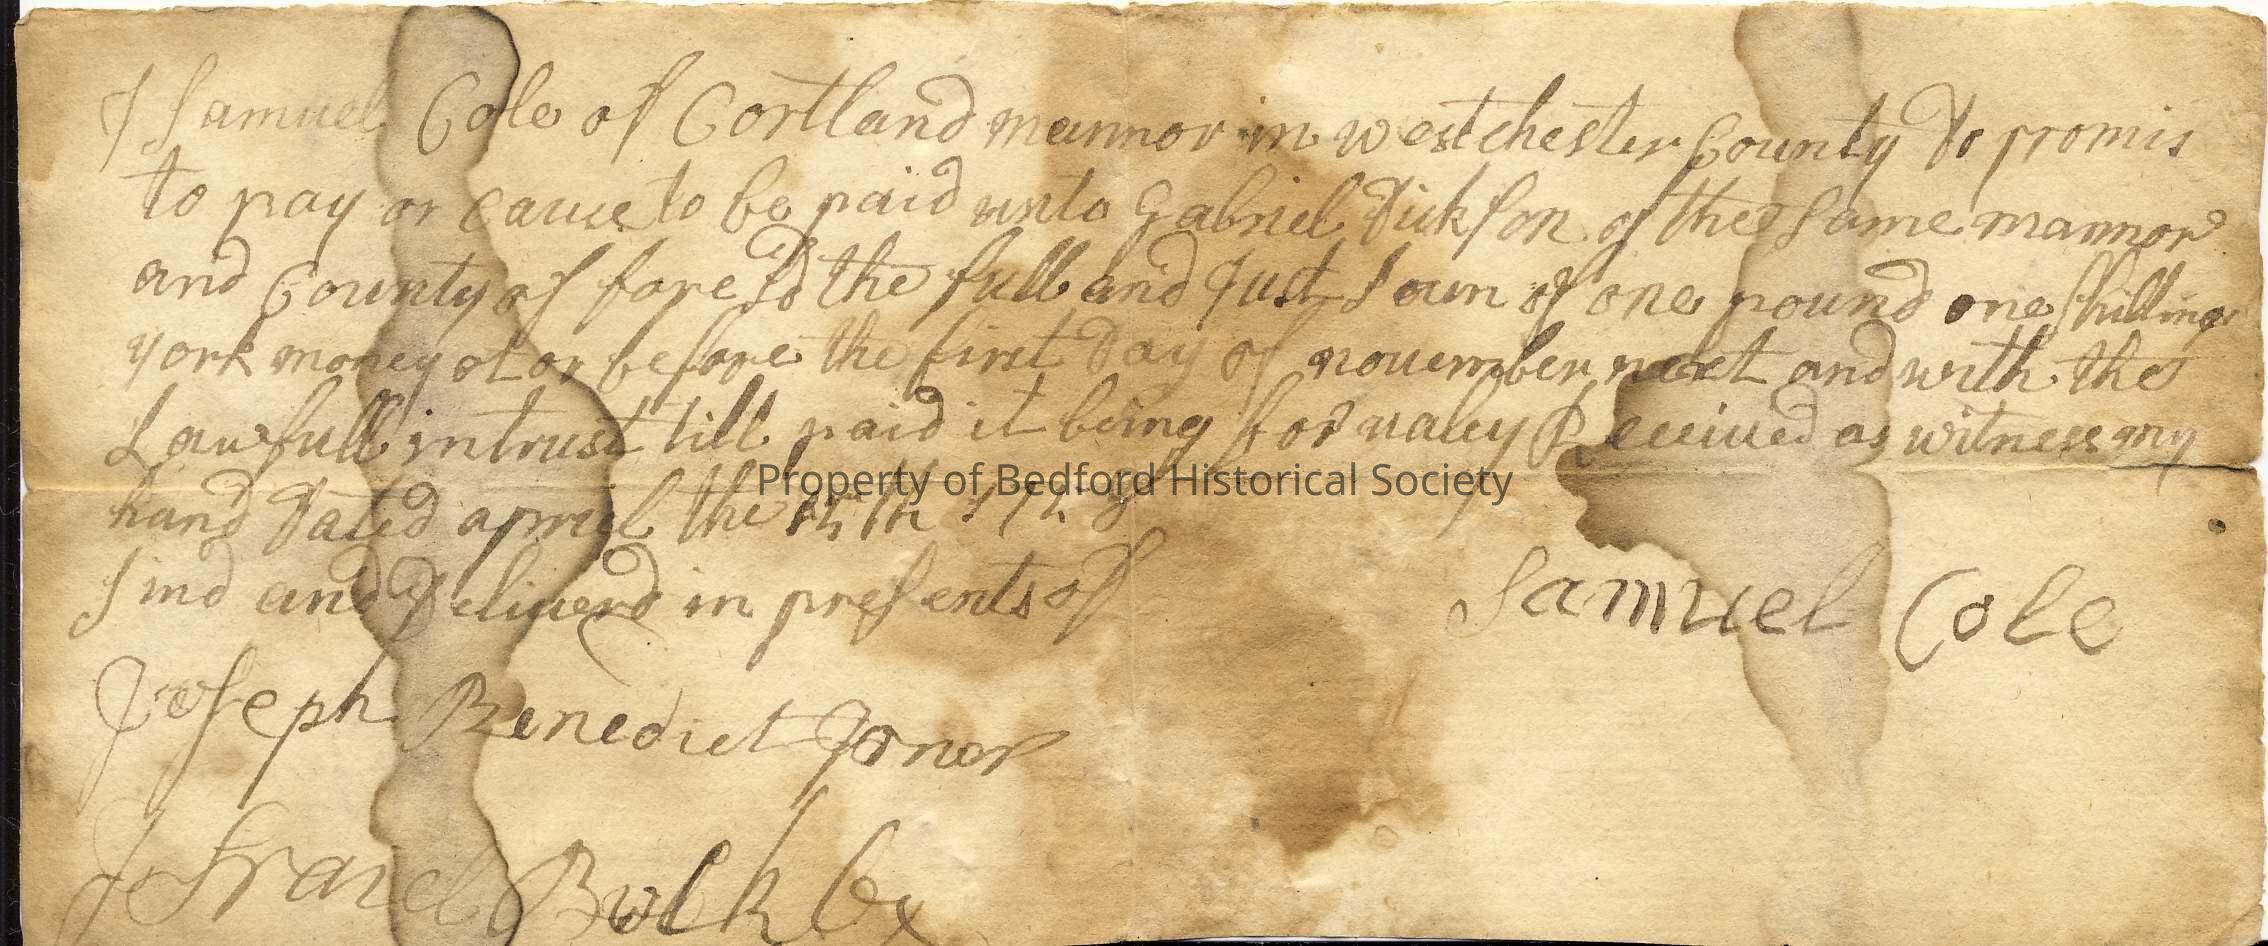 I Samuel Cole of Cortland mannor in westchester County Do promis
to pay or cause to be paid unto Gabriel Dickson of the same mannor
and County of fore sd the full and Just Soum of one pound one shilling
york money at or before the first Day of nouember next and with the
Lawfull intrust till paid it being for ualey Receiued as witness my
Property of Bedford Historical Society
hand Dated april the
Sind and Deliuerd in presents of
Samuel Cole
Joseph Benedict Jonor
Bulkley